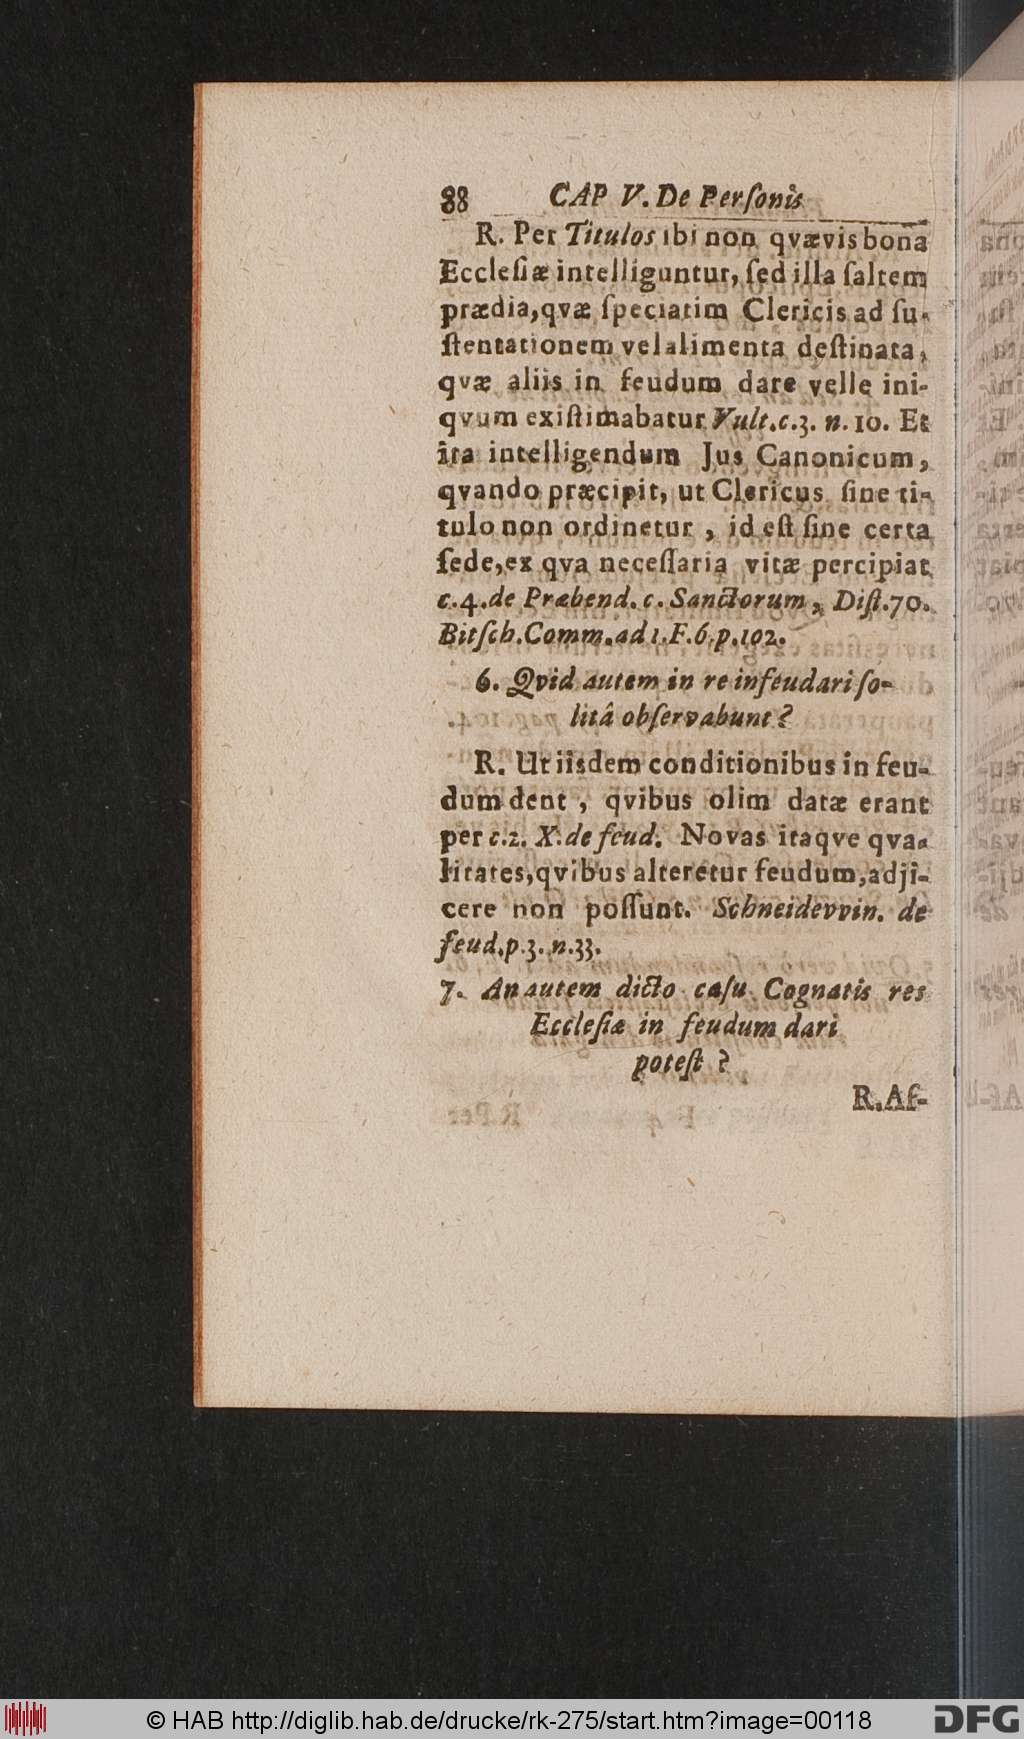 88 CAP V. De Perſonis
R. Per Titulos ibi non qvævis bona
Eccleſiæ intelliguntur, ſed illa ſaltem
prædia, qvæ ſpeciatim Clericis ad ſu-
ſtentationem vel alimenta deſtinata,
qvæ aliis in feudum dare velle ini-
qvum exiſtimabatur Vult. c. 3. n. 10. Et
ita intelligendum Jus Canonicum,
qvando præcipit, ut Clericus ſine ti-
tulo non ordinetur, id eſt ſine certa
ſede, ex qva neceſſaria vitæ percipiat
c. 4. de Præbend. c. Sanctorum, Diſt. 70.
Bitſch. Comm. ad 1. F. 6. p. 102.
6. Qvid autem in re infeudari ſo-
litâ obſervabunt?
R. Ut iisdem conditionibus in feu-
dum dent, qvibus olim datæ erant
per c. 2. X. de feud. Novas itaqve qva-
litates, qvibus alteretur feudum, adji-
cere non poſſunt. Schneidevvin. de
feud. p. 3. n. 33.
7. An autem dicto caſu Cognatis res
Eccleſiæ in feudum dari
poteſt?
R. Aſ-
© HAB http://diglib.hab.de/drucke/rk-275/start.htm?image=00118
DFG